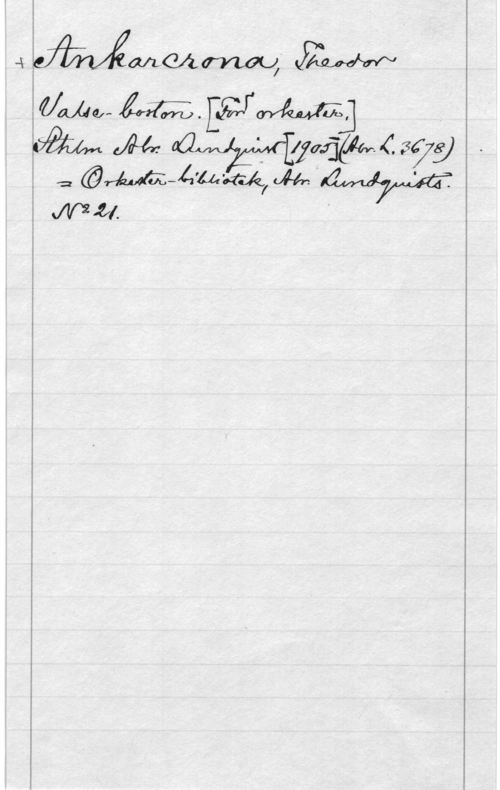 + Ankarcrona, Theodor
Valse-boston. [För orkester.]
Sthlm Abr. Lundquist [1905] (Abr. L. 3678)
= Orkester-bibliotek, Abr. Lundquists.
№ 21.